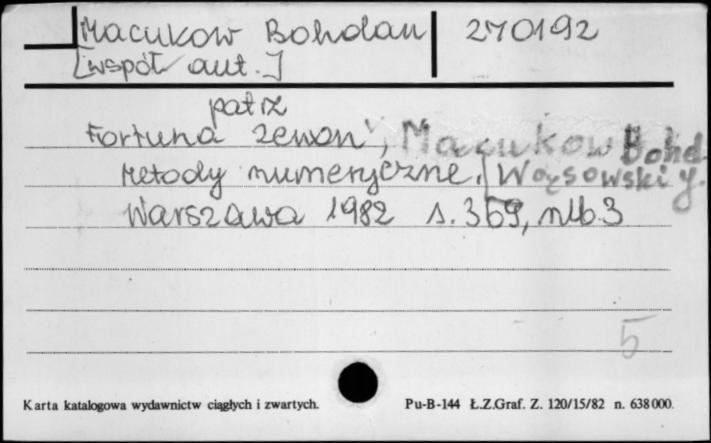 [Macukow Bohdan 270192
[współaut.]
patrz
Fortuna Zenon, Macukow Bohd.
Metody numeryczne. / Wąsowski J.
Warszawa 1982 s. 369, nlb. 3
5
Karta katalogowa wydawnictw ciągłych i zwartych. Pu-B-144 Ł.Z.Graf. Z. 120/15/82 n. 638000.